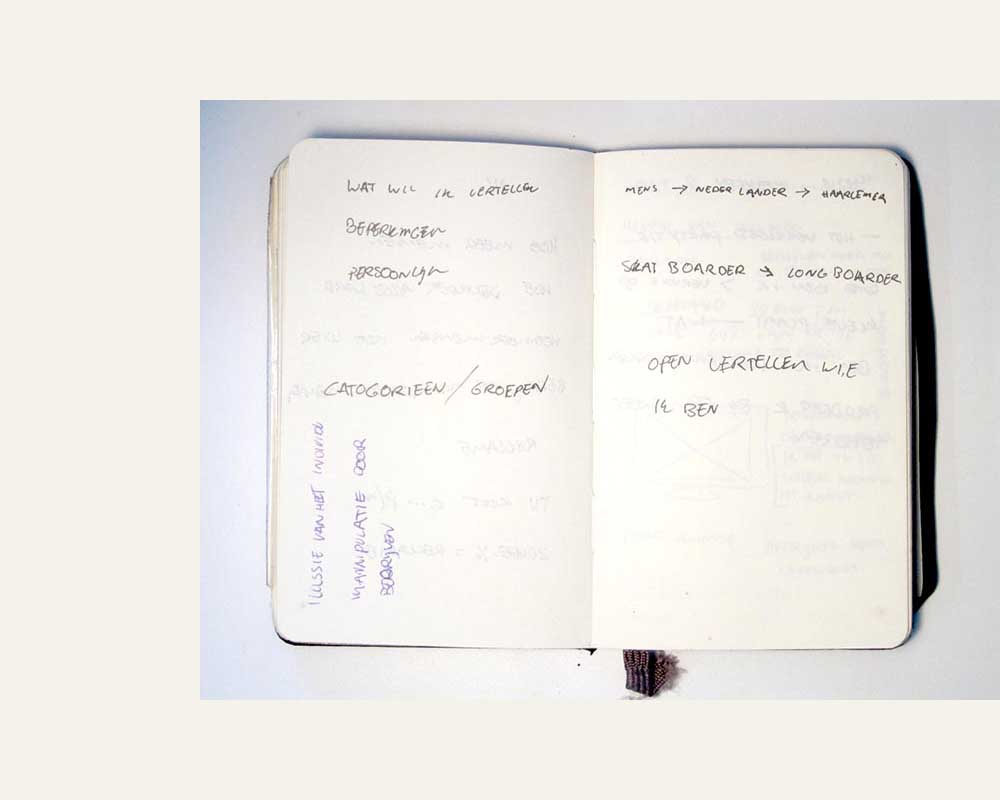 WAT WIL IK VERTELLEN
BEPERKINGEN
PERSOONLIJK
CATOGORIEEN / GROEPEN
ILLUSSIE VAN HET INDIVIDU
MANIPULATIE DOOR
BEDRIJVEN
MENS → NEDERLANDER → HAARLEMER
SKAT BOARDER → LONGBOARDER
OPEN VERTELLEN WIE
IK BEN